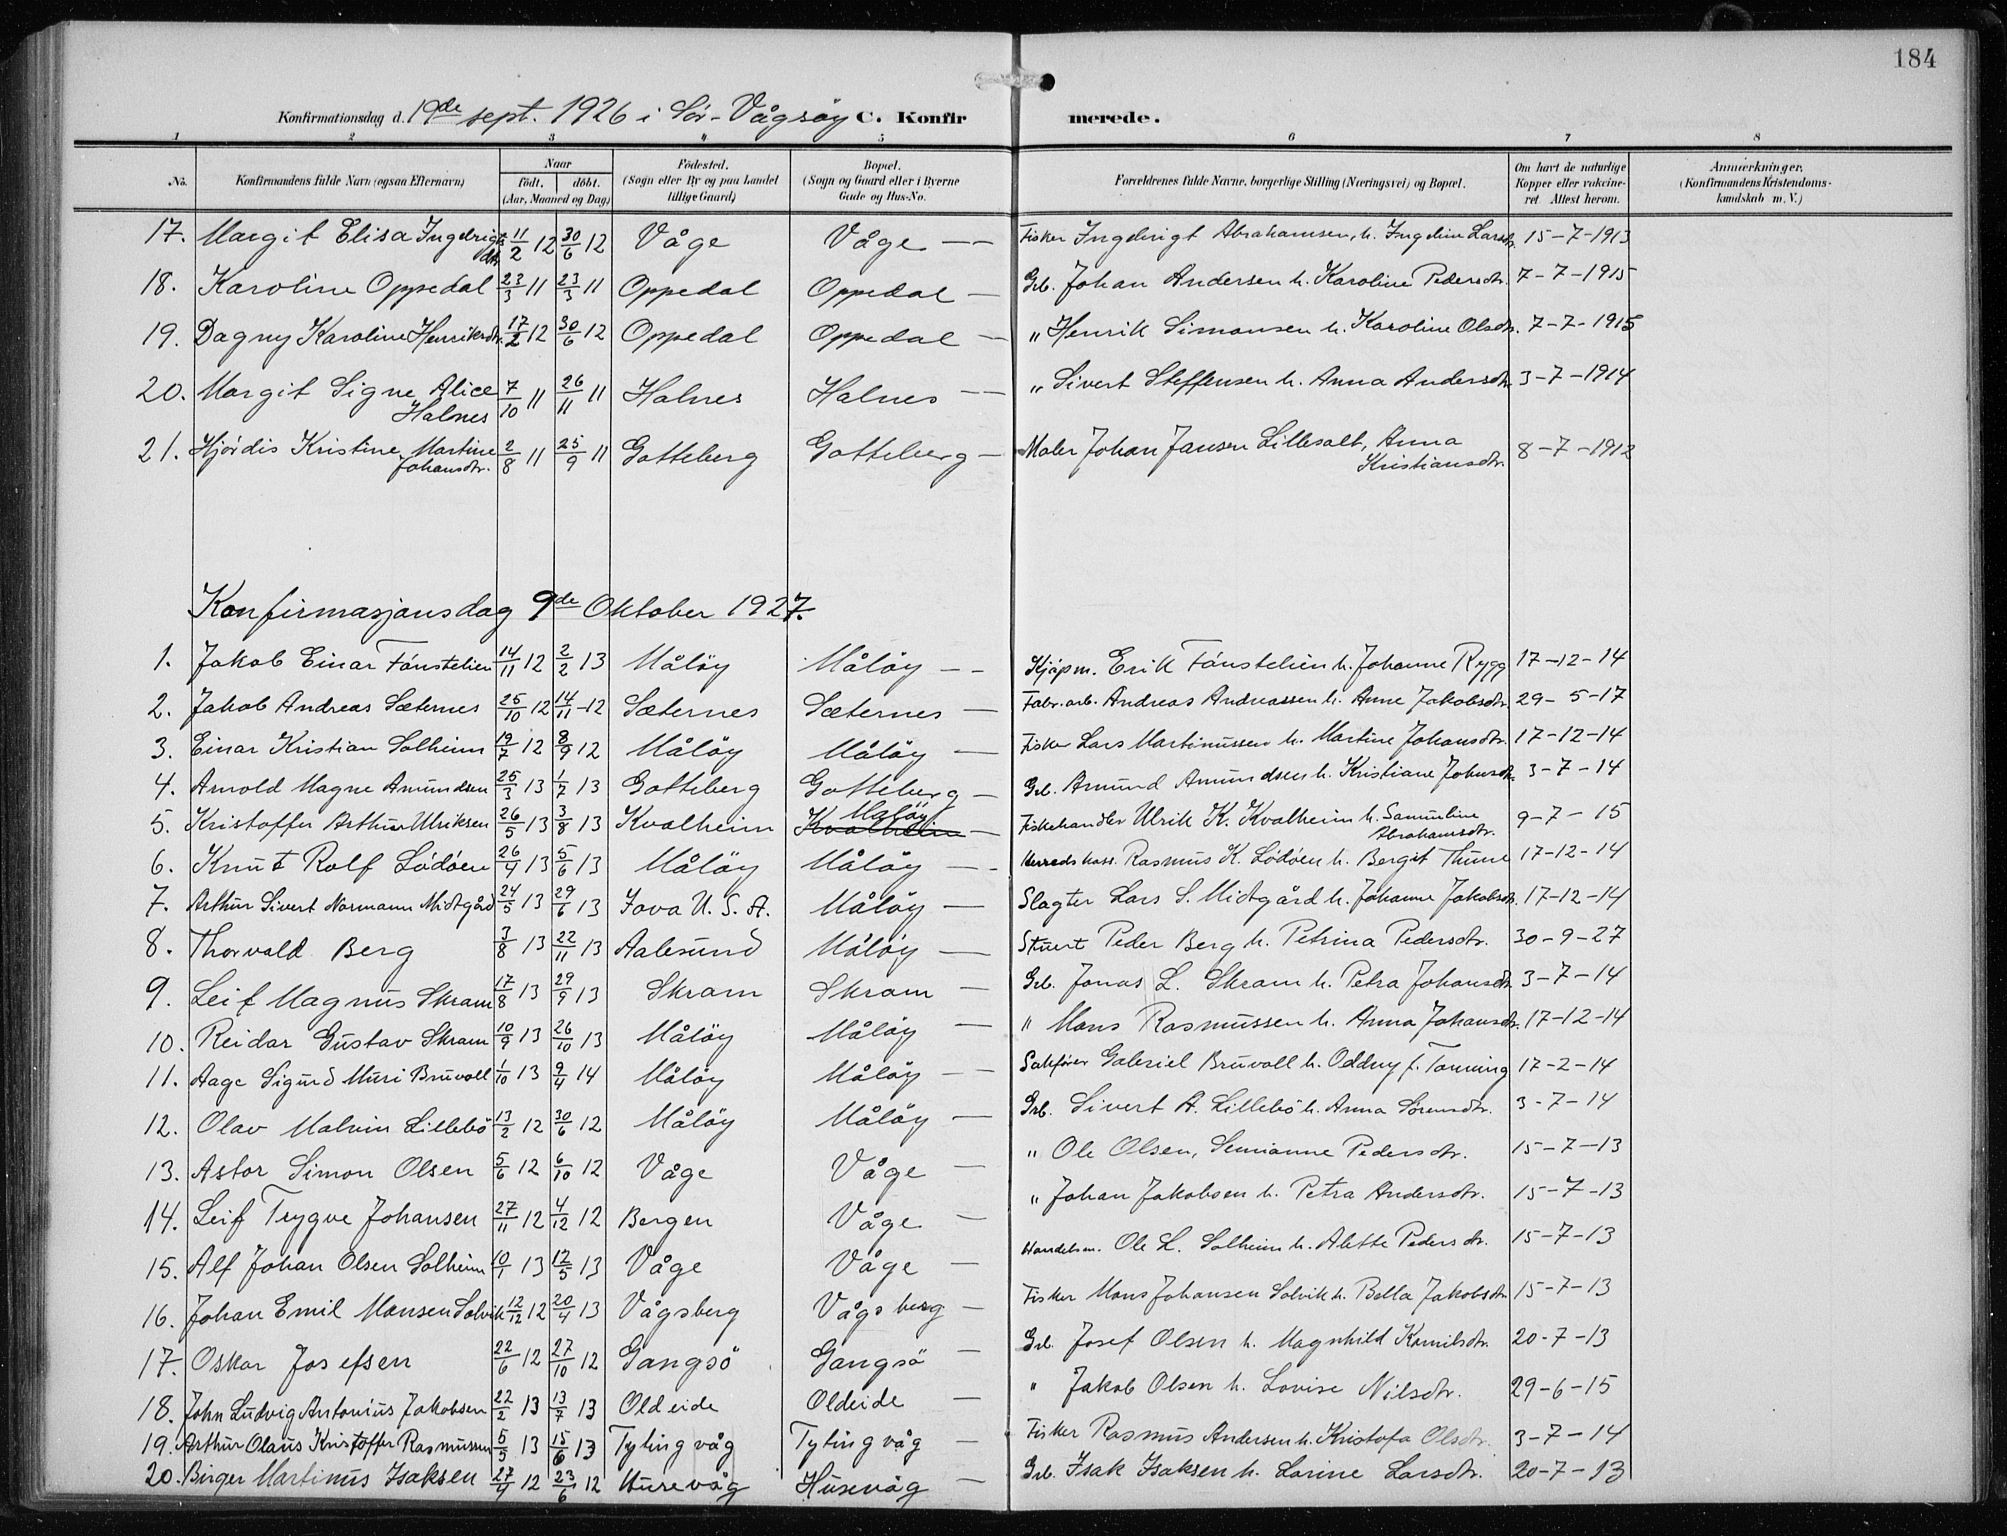 184
Konfirmationsdag d. 19de sept. 1926 i Sör-Vågsöy C. Konfirmerede.
1 2 3 4 5 6 7 8
No. Konfirmandens fulde Navn (ogsaa Efternavn) Naar födt. döbt. (Aar, Maaned og Dag) Födested. (Sogn eller By og paa Landet tillige Gaard) Bopæl. (Sogn og Gaard eller i Byerne Gade og Hus-No. Forældrenes fulde Navne, borgerlige Stilling (Næringsvei) og Bopæl. Om havt de naturlige Kopper eller vakcineret. Attest herom. Anmærkninger. (Konfirmandens Kristendomskundskab m. V.)
17. Margit Elisa Ingebrigtsdtr. 11/2 12 30/6 12 Våge Våge — Fisker Ingebrigt Abrahamsen, h. Ingeline Larsdtr. 15-7-1913
18. Karoline Oppedal 23/3 11 23/3 11 Oppedal Oppedal — Grb. Johan Andersen h. Karoline Pedersdtr. 7-7-1915
19. Dagny Karoline Henriksdtr. 17/2 12 30/6 12 Oppedal Oppedal — " Henrik Simonsen h. Karoline Olsdtr. 7-7-1915
20. Margit Signe Alice Halnes 7/10 11 26/11 11 Halnes Halnes — " Sivert Steffensen h. Anna Andersdtr. 3-7-1914
21. Hjördis Kristine Martine Johansdtr. 2/8 11 25/9 11 Gotteberg Gotteberg — Maler Johan Jansen Lillesalt, Anna Kristiansdtr. 8-7-1912
Konfirmasjonsdag 9de Oktober 1927.
1. Jakob Einar Fónstelien 14/11 12 2/2 13 Målöy Målöy — Kjöpm. Erik Fónstelien h. Johanne Rygg 17-12-14
2. Jakob Andreas Sæternes 25/10 12 14/11 12 Sæternes Sæternes — Fabr.arb. Andreas Andreassen h. Anne Jakobsdtr. 29-5-17
3. Einar Kristian Solheim 19/7 12 8/9 12 Målöy Målöy — Fisker Lars Martinussen h. Martine Johansdtr. 17-12-14
4. Arnold Magne Amundsen 25/3 13 1/7 13 Gotteberg Gotteberg — Grb. Amund Amundsen h. Kristiane Johnsdtr. 3-7-14
5. Kristoffer Arthur Ulriksen 26/5 13 3/8 13 Kvalheim Kvalheim Måløy — Fiskehandler Ulrik K. Kvalheim h. Samueline Abrahamsdtr. 9-7-15
6. Knut Rolf Lødøen 26/4 13 5/6 13 Målöy Målöy — Herredskass. Rasmus K. Lødøen h. Bergit Thune 17-12-14
7. Arthur Sivert Normann Midtgård 24/5 13 29/6 13 Jova U.S.A. Målöy — Slagter Lars S. Midtgård h. Johanne Jakobsdtr. 17-12-14
8. Thorvald Berg 3/8 13 22/11 13 Aalesund Målöy — Stuert Peder Berg h. Petrina Pedersdtr. 30-9-27
9. Leif Magnus Skram 17/8 13 29/9 13 Skram Skram — Grb. Jonas L. Skram h. Petra Johansdtr. 3-7-14
10. Reidar Gustav Skram 10/9 13 26/10 13 Målöy Målöy — " Mons Rasmussen h. Anna Johansdtr. 17-12-14
11. Aage Sigurd Muri Bruvoll 1/10 13 9/4 14 Målöy Målöy — Sakfører Gabriel Bruvoll h. Oddny f. Tonning 17-2-14
12. Olav Malvin Lillebö 13/2 12 30/6 12 Målöy Målöy — Grb. Sivert A. Lillebö h. Anna Sörensdtr. 3-7-14
13. Astor Simon Olsen 5/6 12 6/10 12 Våge Våge — " Ole Olsen, Semianne Pedersdtr. 15-7-13
14. Leif Trygve Johansen 27/11 12 4/12 12 Bergen Våge — " Johan Jakobsen h. Petra Andersdtr. 15-7-13
15. Alf Johan Olsen Solheim 10/1 13 12/5 13 Våge Våge — Handelsm. Ole L. Solheim h. Alette Pedersdtr. 15-7-13
16. Johan Emil Monsen Solvik 12/12 12 20/4 13 Vågsberg Vågsberg — Fisker Mons Johansen Solvik h. Bella Jakobsdtr. 15-7-13
17. Oskar Josefsen 22/6 12 27/10 12 Gangsö Gangsö — Grb. Josef Olsen h. Magnhild Kamilsdtr. 20-7-13
18. John Ludvig Antonius Jakobsen 22/2 13 13/7 13 Oldeide Oldeide — " Jakob Olsen h. Lovise Nilsdtr. 29-6-15
19. Arthur Olaus Kristoffer Rasmussen 5/5 13 15/6 13 Tytingvåg Tytingvåg — Fisker Rasmus Andersen h. Kristofa Olsdtr. 3-7-14
20. Birger Martinus Isaksen 27/4 12 23/6 12 Husevåg Husevåg — Grb. Isak Isaksen h. Larine Larsdtr. 20-7-13